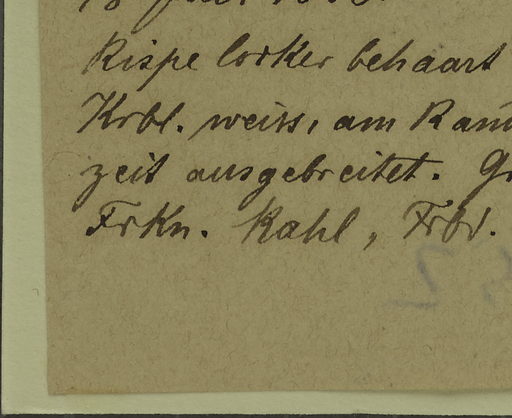 Rispe locker behaart
Krbl. weiss, am Rand
zeit ausgebreitet. Gr
Frkn. Kahl, Frbd.